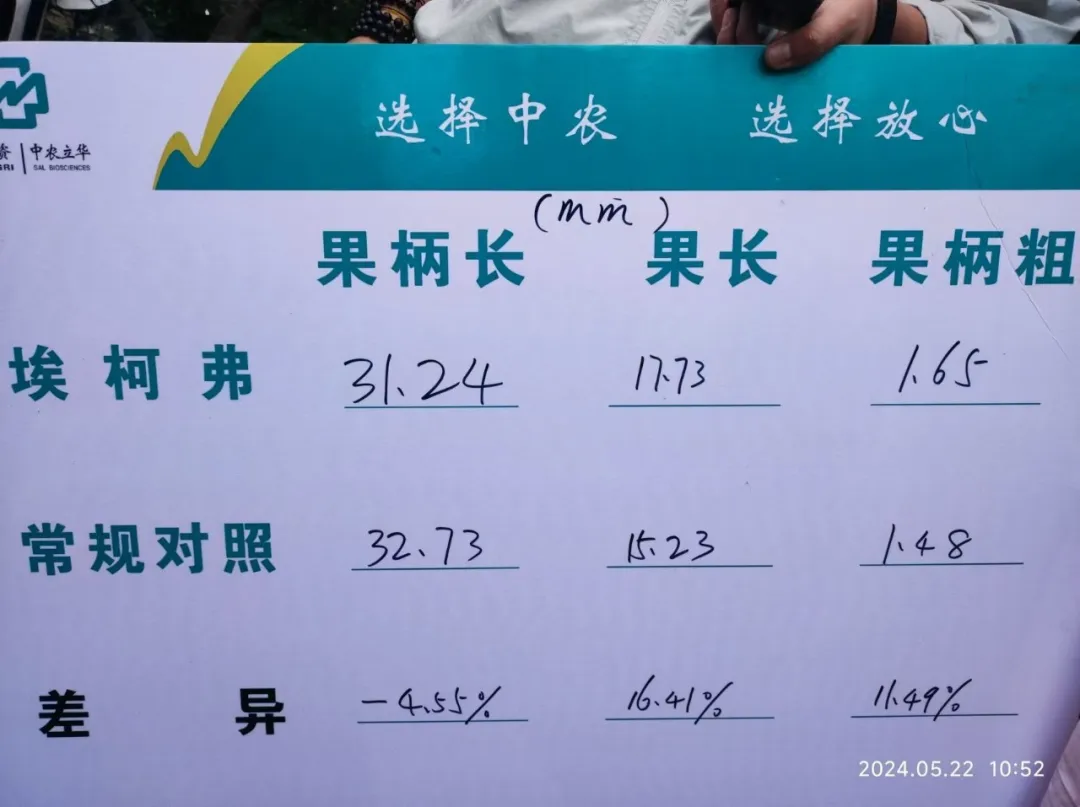 选择中农 选择放心
中农立华
SAL BIOSCIENCES
(mm)
果柄长 果长 果柄粗
埃柯弗 31.24 17.73 1.65
常规对照 32.73 15.23 1.48
差异 -4.55% 16.41% 11.49%
2024.05.22 10:52